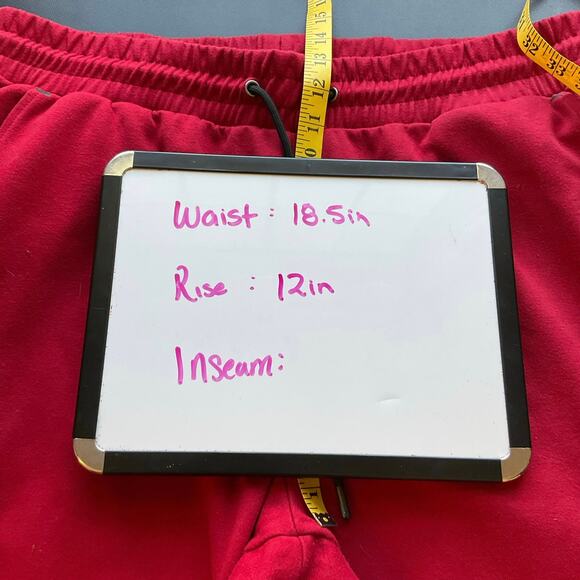 15
14
13
12
11
10
32
33
Waist : 18.5in
Rise : 12in
Inseam: